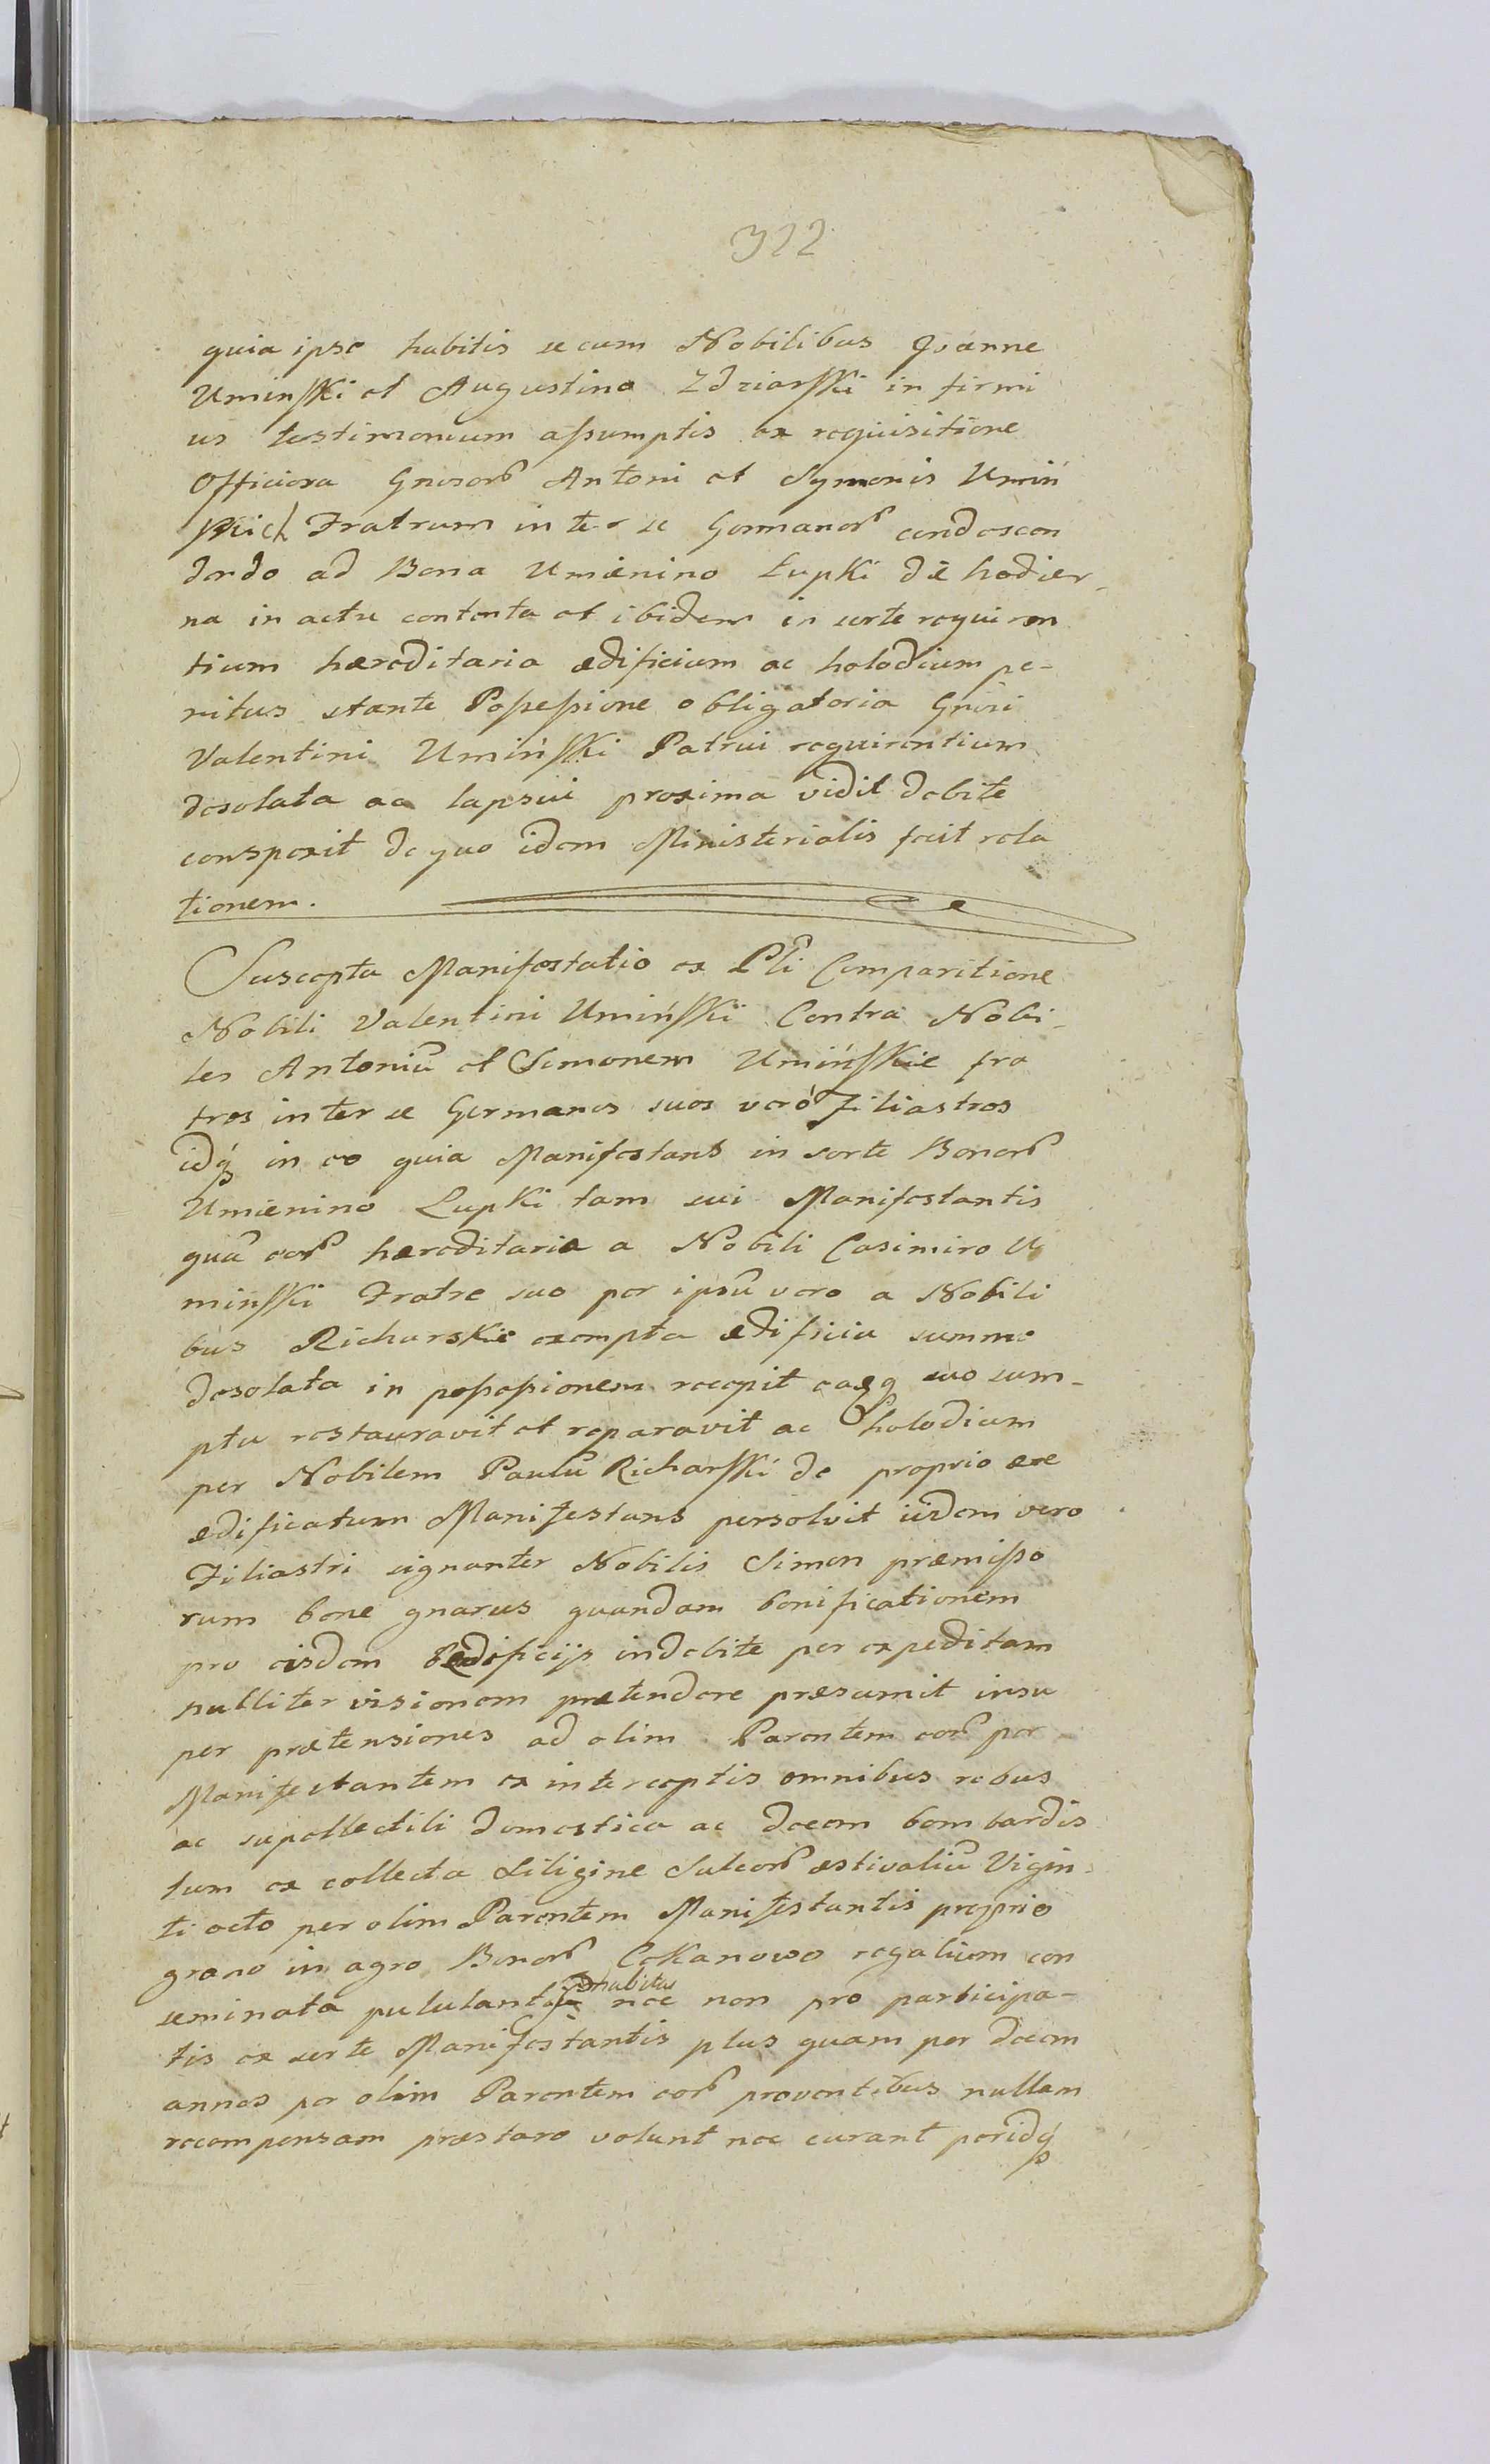 322
quia ipse habitis secum Nobilibus Joanne
Uminski et Augustino Zdziarski in firmi
us testimonium assumptis ex requisitione
Officiosa Gnosor̃ Antoni et Symonis Umiń
skich Fratrum inter se Germanor̃ condescen
dendo ad Bona Umienino Łupki die hodier-
na in actu contenta et ibidem in sorte requiren
tium hæreditaria ædificium ac holodium pe-
nitus stante Possessione obligatoria Gnosi
Valentini Umiński Patrui requirentium
desolata ac lapsui proxima vidit debite
conspexit de quo idem Ministerialis fecit rela
tionem.
Suscepta Manifestatio ex Pli Comparitione
Nobili Valentini Umiński Contra Nobi-
les Antoniũ et Simonem Umińskie fra
tres inter se Germanos suos verò Filiastros
idq́ in eo quia Manifestans in sorte Bonor̃
Umienino Łupki tam sui Manifestantis
quã eor̃ hæreditaria a Nobili Casimiro U
minski Fratre suo per ipsũ vero a Nobili
bus Richarskie exempta ædificia summe
desolata in possessionem recepit eaqq suo sum-
ptu restauravit et reparavit ac holodium
per Nobilem Paulũ Richarski de proprio ære
ædificatum Manifestans persolvit iisdem vero
Filiastri signanter Nobilis Simon præmisso
rum bene gnarus quandam bonificationem
pro eisdem ædificijs indebite per expeditam
nulliter visionem prætendere præsumit insu
per prætensiones ad olim Parentem eor̃ per
Manifestantem ex interceptis omnibus rebus
ac supellectili domestica ac decem bombardis
tum ex collecta siligine Sulcor̃ æstivaliũ Vigin-
ti octo per olim Parentem Manifestantis proprio
grano in agro Bonor̃ Cekanowo regalium con
seminata pululantq habitas nec non pro participa-
tis ex sorte Manifestantis plus quam per decem
annos per olim Parentem eor̃ proventibus nullam
recompensam præstare volunt nec curant peridq́